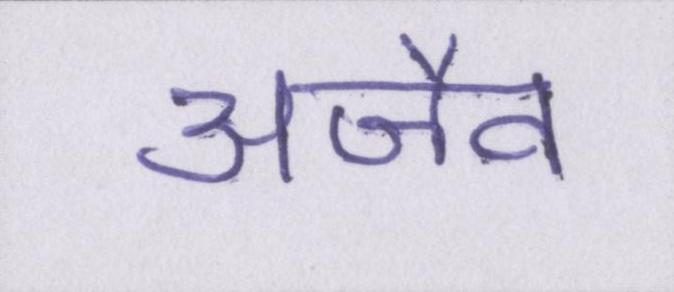 अजैव